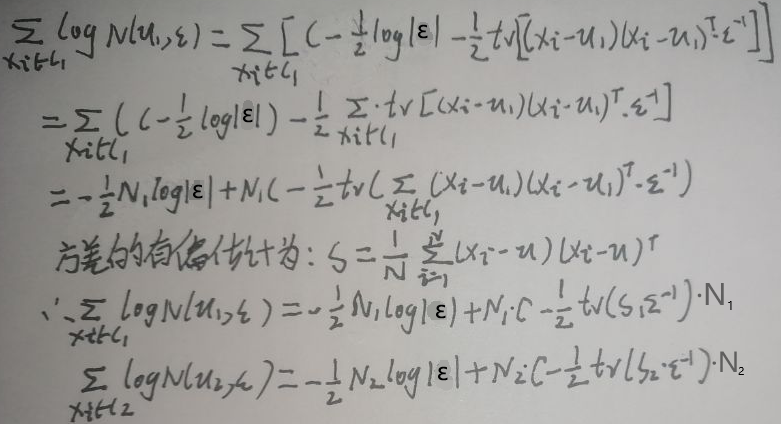 ∑_{xi∈C₁} log N(u₁, ε) = ∑_{xi∈C₁} [C - ½ log|ε| - ½ tr[(xi-u₁)(xi-u₁)ᵀ·ε⁻¹]]
= ∑_{xi∈C₁} (C - ½ log|ε|) - ½ ∑_{xi∈C₁} · tr[(xi-u₁)(xi-u₁)ᵀ·ε⁻¹]
= -½ N₁ log|ε| + N₁C - ½ tr(∑_{xi∈C₁} (xi-u₁)(xi-u₁)ᵀ·ε⁻¹)
方差的有偏估计为: S = 1/N ∑_{i=1}^{N} (xi-u)(xi-u)ᵀ
∴ ∑_{xi∈C₁} log N(u₁, ε) = -½ N₁ log|ε| + N₁·C - ½ tr(S₁ε⁻¹)·N₁
∑_{xi∈C₂} log N(u₂, ε) = -½ N₂ log|ε| + N₂·C - ½ tr(S₂·ε⁻¹)·N₂